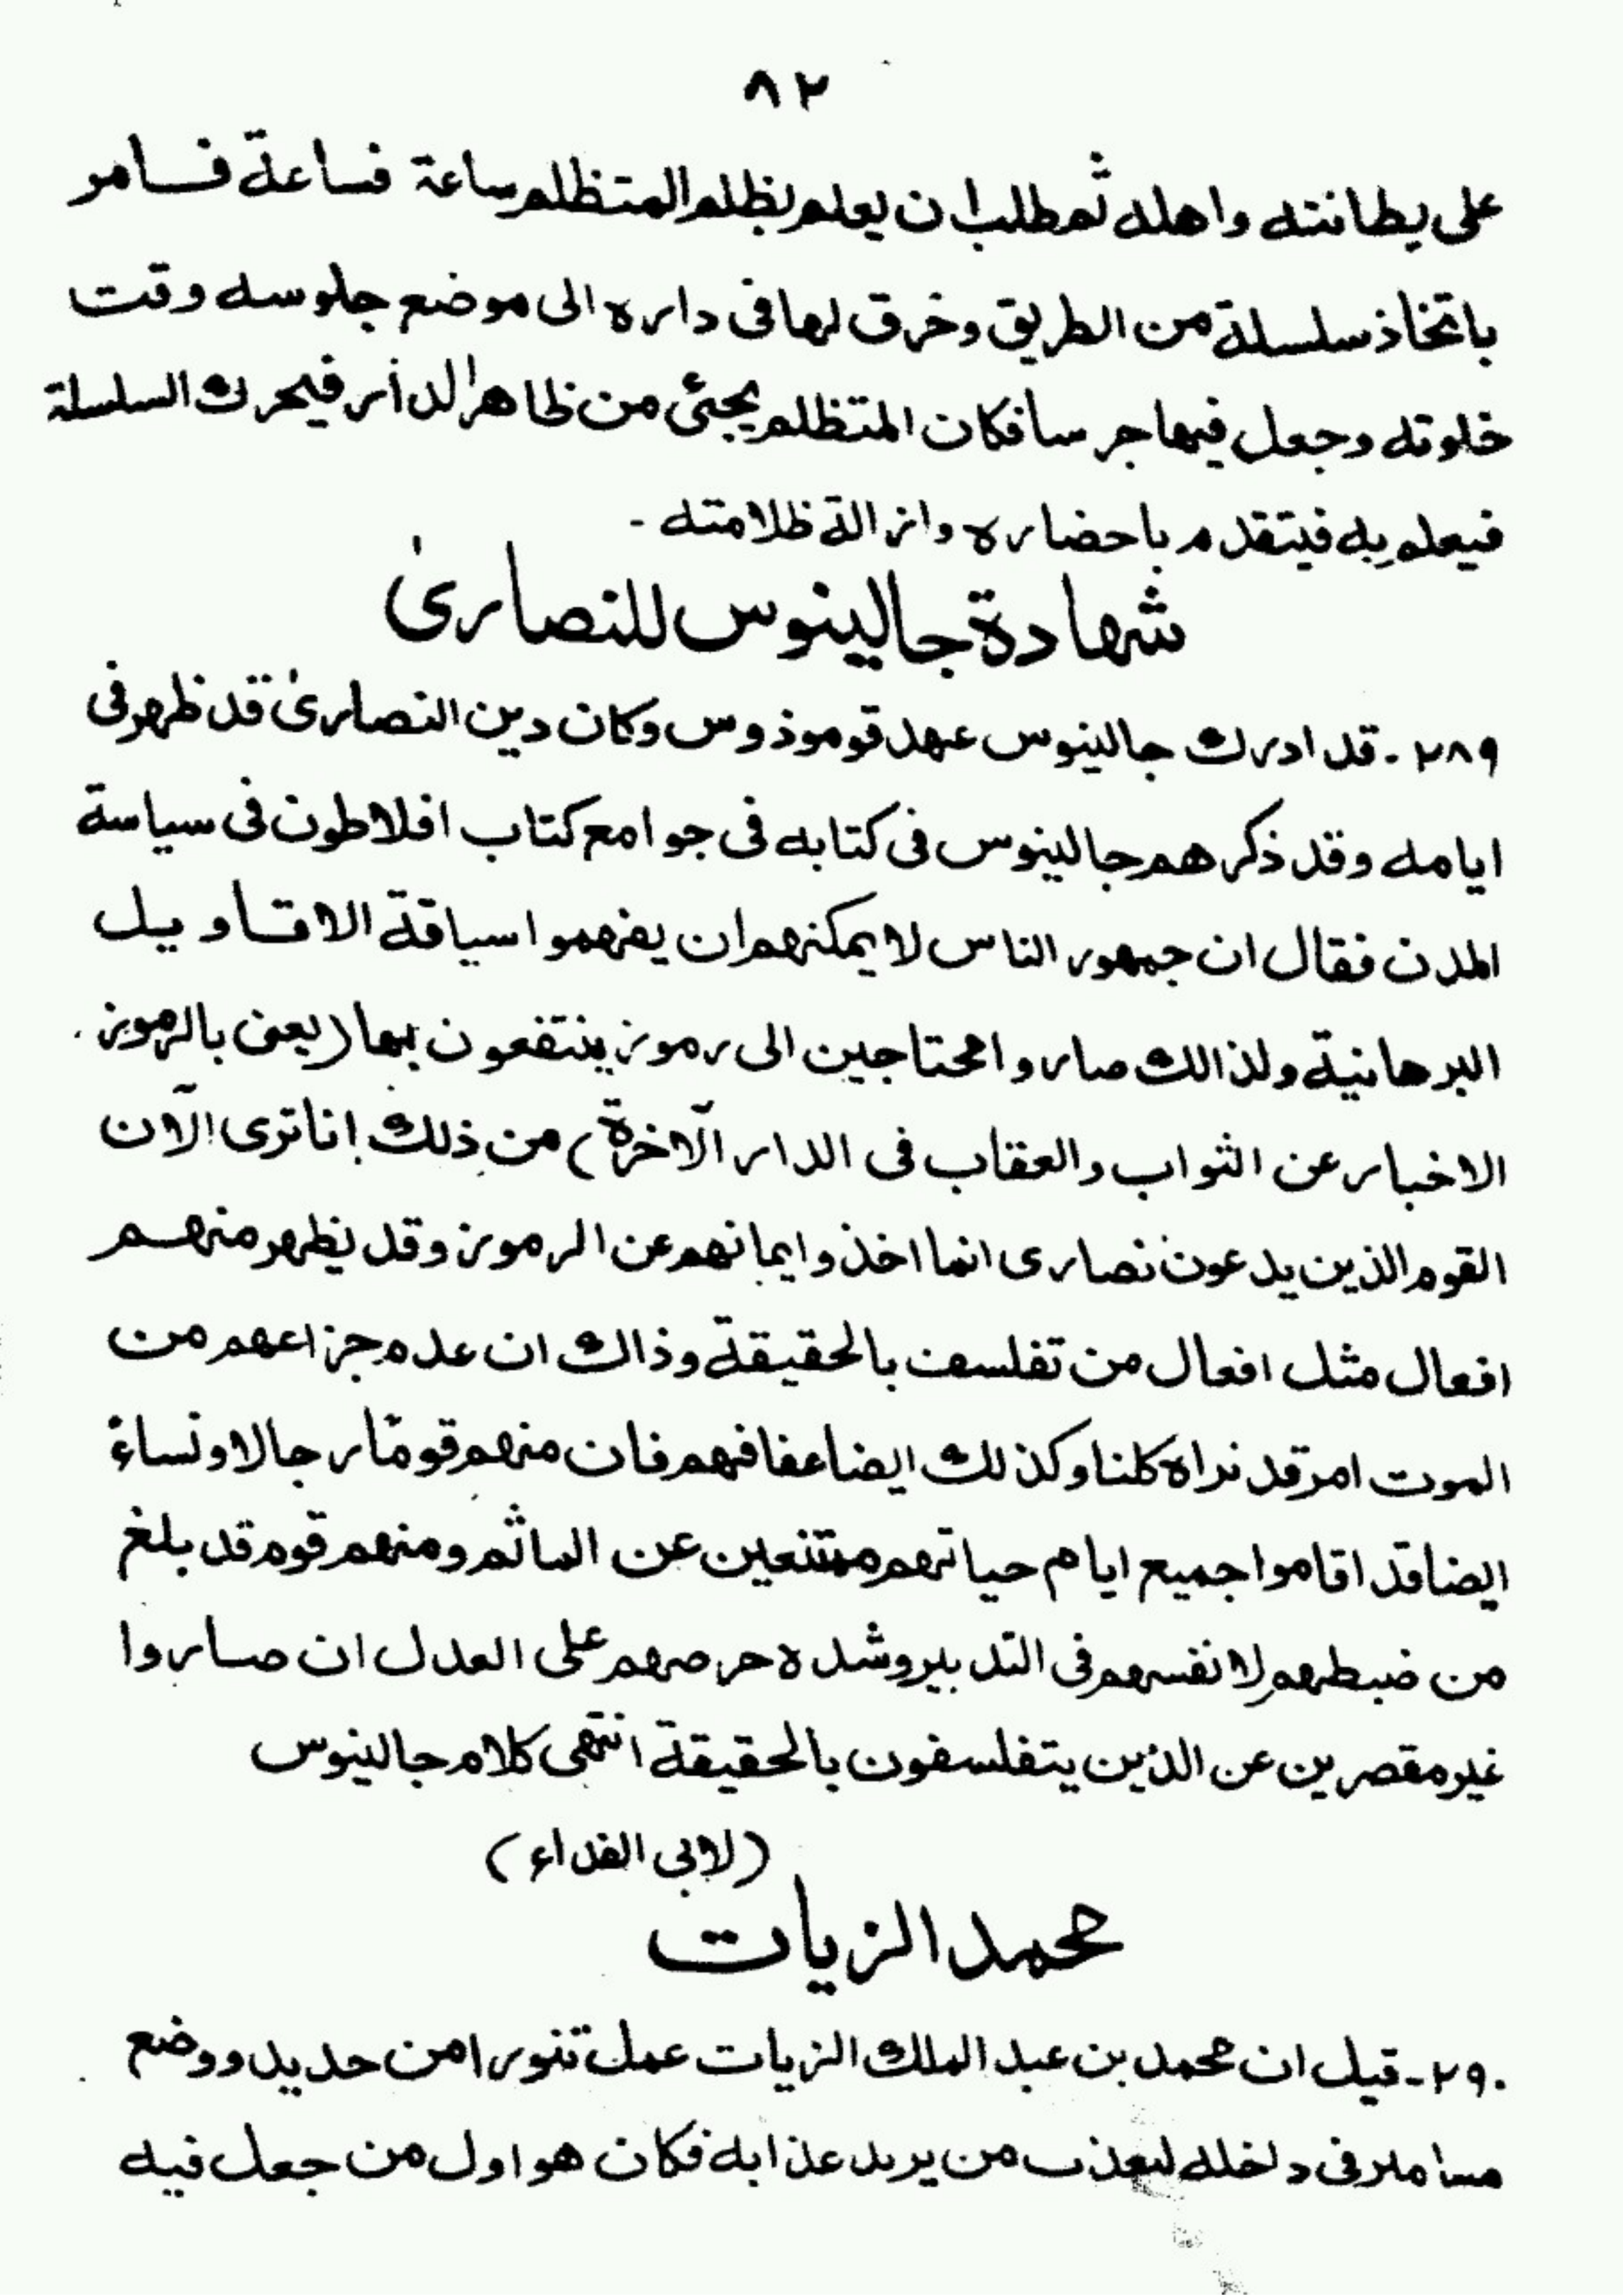 ٨٢
على بطانته واهله ثم طلب ان يعلم بظلم المتظلم ساعة فساعة فامر
باتخاذ سلسلة من الطريق وخرق لها فى داره الى موضع جلوسه وقت
خلوته وجعل فيها جرسا فكان المتظلم يجئى من ظاهر الدار فيحرك السلسلة
فيعلم به فيتقدم باحضاره وازالة ظلامته -
شهادة جالينوس للنصارىٰ
٢٨٩ - قد ادرك جالينوس عهد قوموذوس وكان دين النصارىٰ قد ظهر فى
ايامه وقد ذكرهم جالينوس فى كتابه فى جوامع كتاب افلاطون فى سياسة
المدن فقال ان جمهور الناس لا يمكنهم ان يفهموا سياقة الاقاويل
البرهانية ولذالك صاروا محتاجين الى رموز ينتفعون بها (يعنى بالرموز
الاخبار عن الثواب والعقاب فى الدار الآخرة) من ذلك انا نرى الآن
القوم الذين يدعون نصارى انما اخذوا ايمانهم عن الرموز وقد يظهر منهم
افعال مثل افعال من تفلسف بالحقيقة وذالك ان عدم جزاعهم من
الموت امر قد نراه كلنا وكذلك ايضا عفافهم فان منهم قومًا رجالا ونساءً
ايضا قد اقاموا جميع ايام حياتهم ممتنعين عن الماثم ومنهم قوم قد بلغ
من ضبطهم لانفسهم فى التدبير وشده حرصهم على العدل ان صاروا
غير مقصرين عن الذين يتفلسفون بالحقيقة انتهى كلام جالينوس
(لابى الفداء)
محمد الزيات
٢٩٠ - قيل ان محمد بن عبد الملك الزيات عمل تنورا من حديد ووضع
مسامير فى داخله ليعذب من يريد عذابه فكان هو اول من جعل فيه